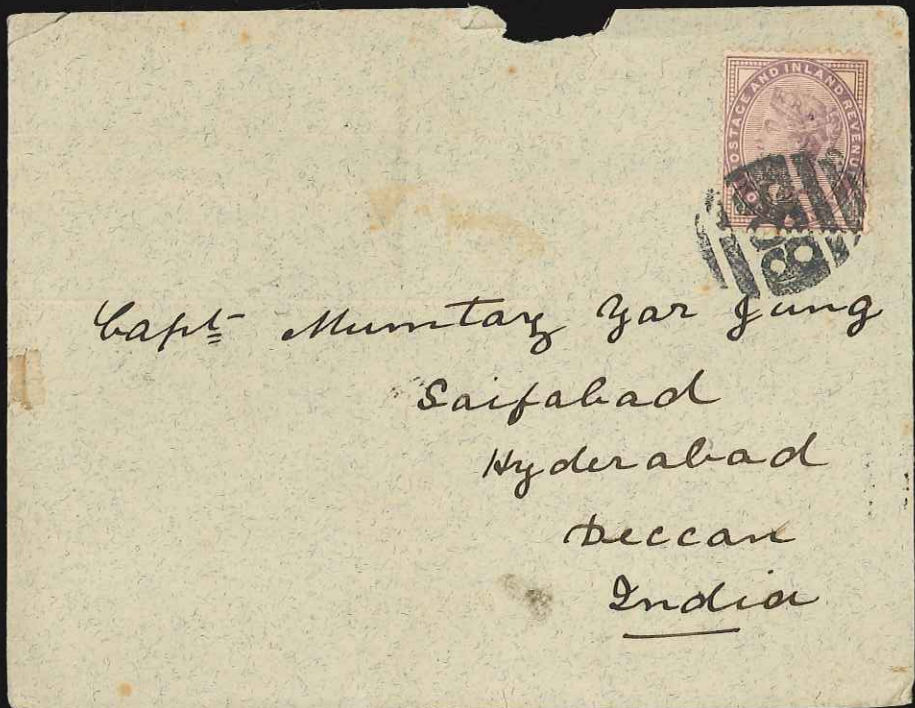 POSTAGE AND INLAND REVENUE
Capt Mumtaz Yar Jung
Saifabad
Hyderabad
Deccan
India